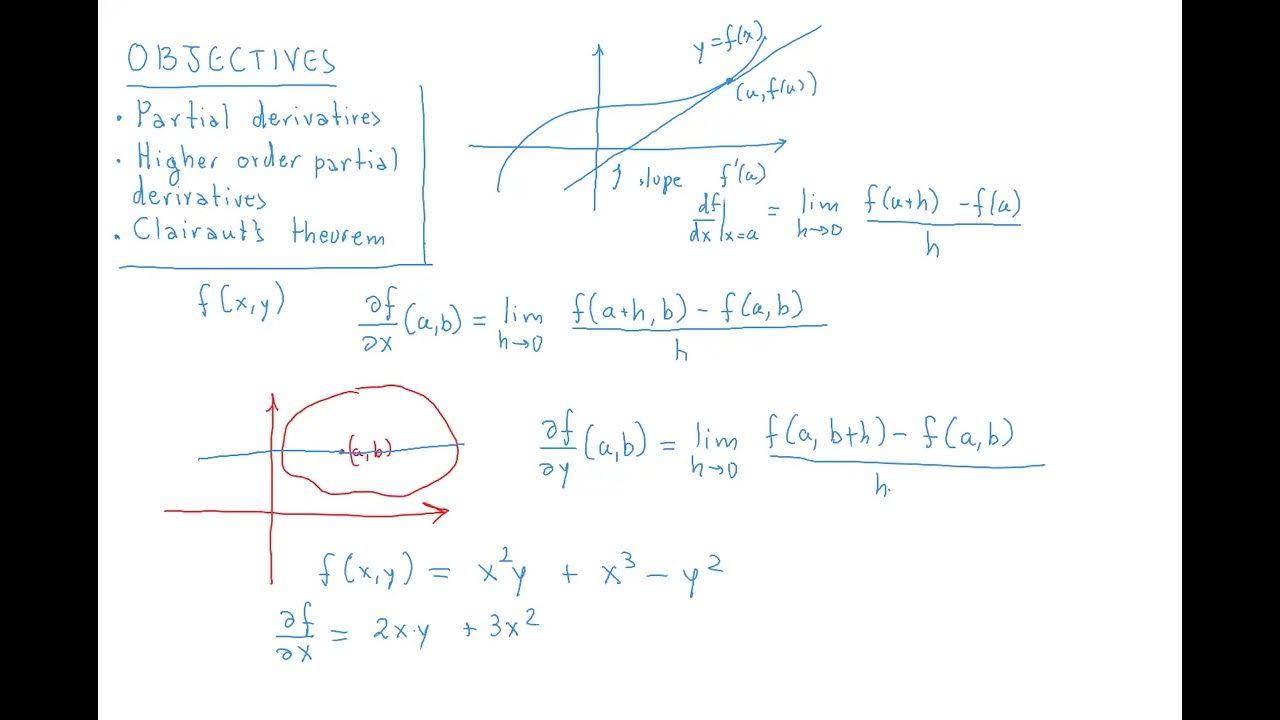 OBJECTIVES
• Partial derivatives
• Higher order partial
derivatives
• Clairaut's theorem
y = f(x)
(a, f(a))
slope f'(a)
df/dx|x=a = lim h→0 f(a+h) - f(a) / h
f(x,y)
∂f/∂x (a,b) = lim h→0 f(a+h, b) - f(a,b) / h
(a,b)
∂f/∂y (a,b) = lim h→0 f(a, b+h) - f(a,b) / h.
f(x,y) = x²y + x³ - y²
∂f/∂x = 2x·y + 3x²